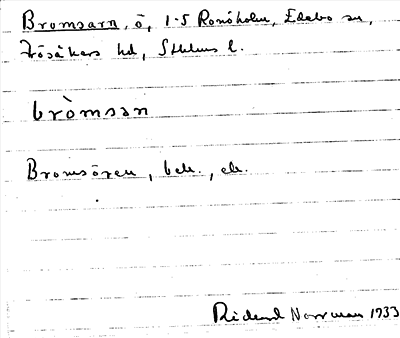 Bromsarn, ö, 1·5 Ronöholm, Edebo sn,
Frösåkers hd, Sthlms l.
bròmsan
Bromsören, beb., eb.
Rickard Norrman 1933